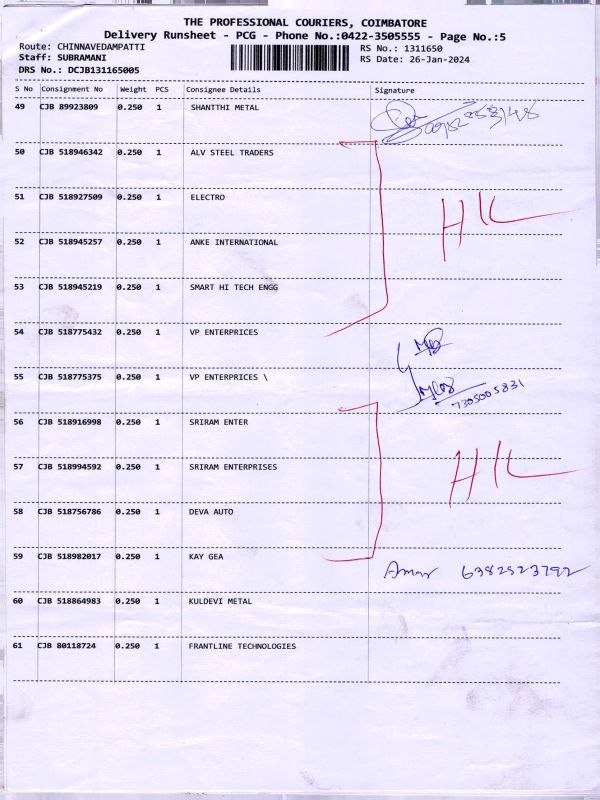 THE PROFESSIONAL COURIERS, COIMBATORE
Delivery Runsheet - PCG - Phone No.:0422-3505555 - Page No.:5
Route: CHINNAVEDAMPATTI RS No.: 1311650
Staff: SUBRAMANI RS Date: 26-Jan-2024
DRS No.: DCJB131165005
S No Consignment No Weight PCS Consignee Details Signature
49 CJB 89923809 0.250 1 SHANTTHI METAL
50 CJB 518946342 0.250 1 ALV STEEL TRADERS
51 CJB 518927509 0.250 1 ELECTRO
52 CJB 518945257 0.250 1 ANKE INTERNATIONAL
53 CJB 518945219 0.250 1 SMART HI TECH ENGG
54 CJB 518775432 0.250 1 VP ENTERPRICES
55 CJB 518775375 0.250 1 VP ENTERPRICES \
7305005831
56 CJB 518916998 0.250 1 SRIRAM ENTER
57 CJB 518994592 0.250 1 SRIRAM ENTERPRISES
58 CJB 518756786 0.250 1 DEVA AUTO
59 CJB 518982017 0.250 1 KAY GEA Amar 6382523792
60 CJB 518864983 0.250 1 KULDEVI METAL
61 CJB 80118724 0.250 1 FRANTLINE TECHNOLOGIES